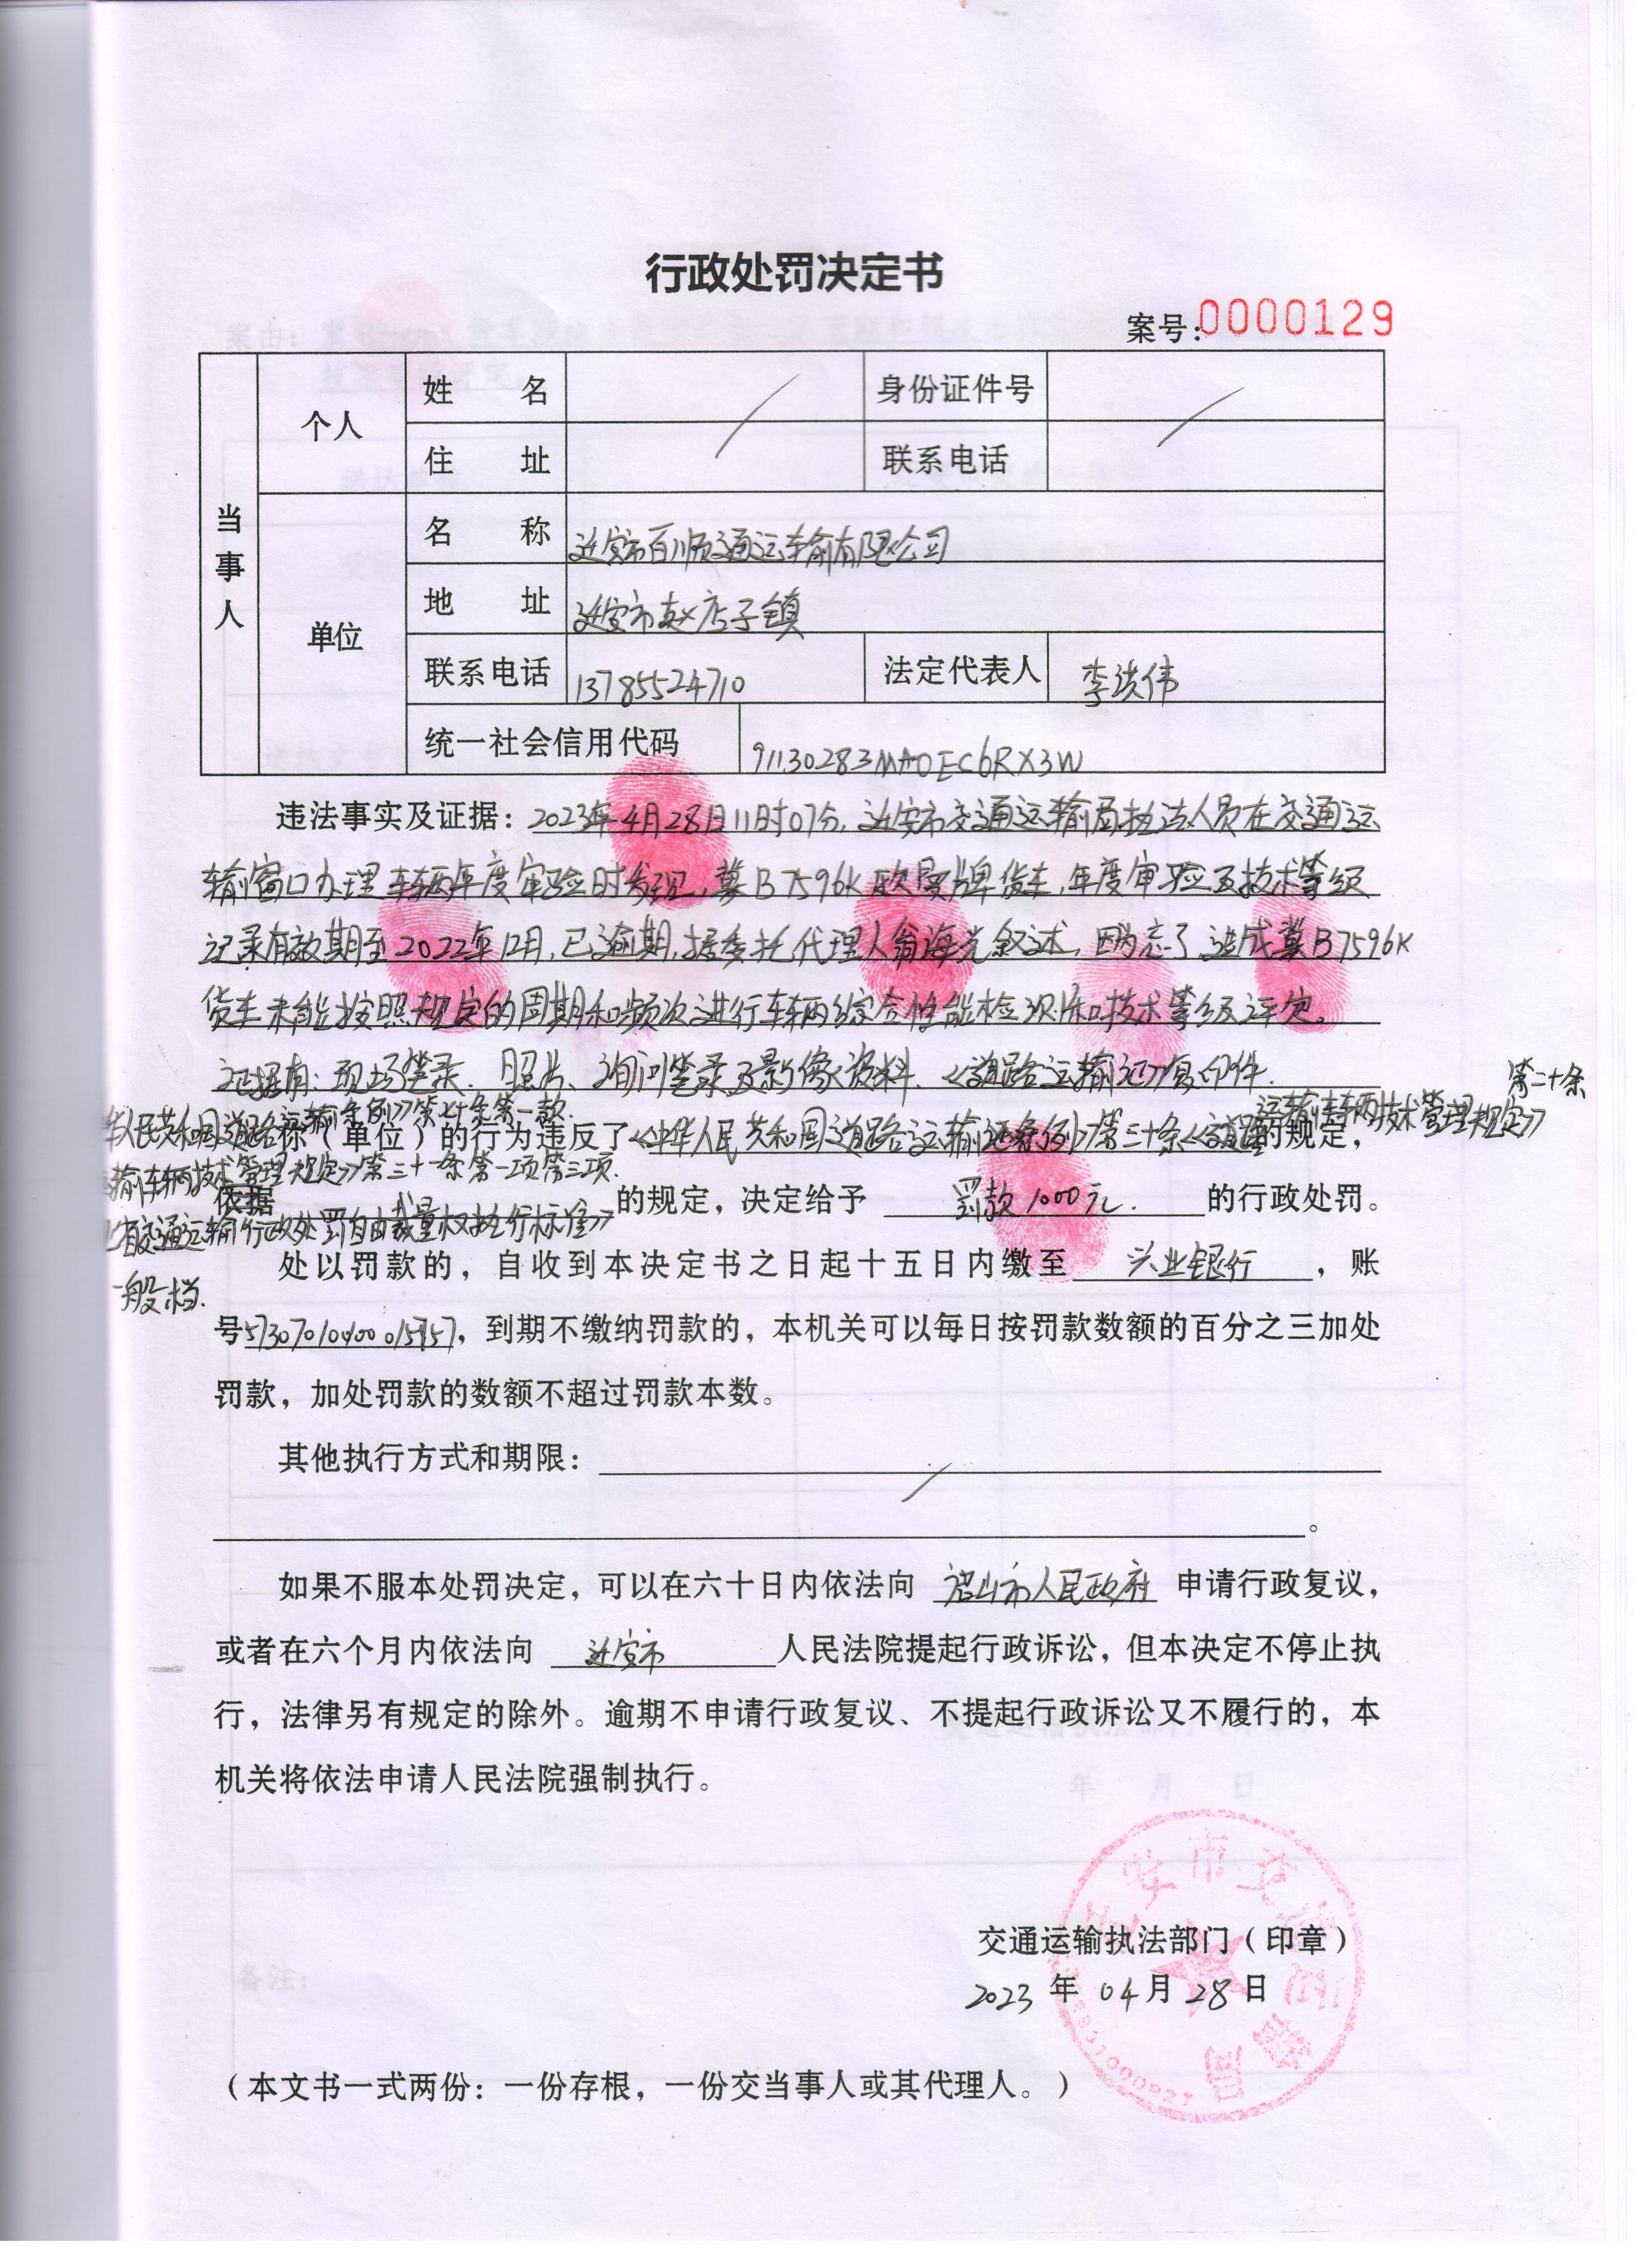 行政处罚决定书
案号:0000129
当事人
个人
姓 名 / 身份证件号 /
住 址 联系电话
单位
名 称 迁安市百顺通运输有限公司
地 址 迁安市赵店子镇
联系电话 13785524710 法定代表人 李洪伟
统一社会信用代码 91130283MA0EC6RX3W
违法事实及证据：2023年4月28日11时07分，迁安市交通运输局执法人员在交通运
输窗口办理车辆年度审验时发现，冀B7596K欧曼牌货车，年度审验及技术等级
记录有效期至2022年12月，已逾期，据委托代理人翁海光叙述，因为忘了造成冀B7596K
货车未能按照规定的周期和频次进行车辆综合性能检测和技术等级评定。
证据有：现场笔录、照片、询问笔录及影像资料、《道路运输证》复印件.
第二十条
华人民共和国道路运输条例》第七十条第一款.
运输车辆技术管理规定》
(单位)的行为违反了《中华人民共和国道路运输条例》第三十条《道路的规定，
输车辆技术管理规定》第三十一条第一项第三项.
依据 的规定，决定给予 罚款1000元. 的行政处罚。
省交通运输行政处罚自由裁量权执行标准》
一般档.
处以罚款的，自收到本决定书之日起十五日内缴至 兴业银行 ，账
号57307010400015757，到期不缴纳罚款的，本机关可以每日按罚款数额的百分之三加处
罚款，加处罚款的数额不超过罚款本数。
其他执行方式和期限： /
。
如果不服本处罚决定，可以在六十日内依法向 唐山市人民政府 申请行政复议，
或者在六个月内依法向 迁安市 人民法院提起行政诉讼，但本决定不停止执
行，法律另有规定的除外。逾期不申请行政复议、不提起行政诉讼又不履行的，本
机关将依法申请人民法院强制执行。
迁安市交通运输局
交通运输执法部门（印章）
2023 年 04 月 28 日
（本文书一式两份：一份存根，一份交当事人或其代理人。）